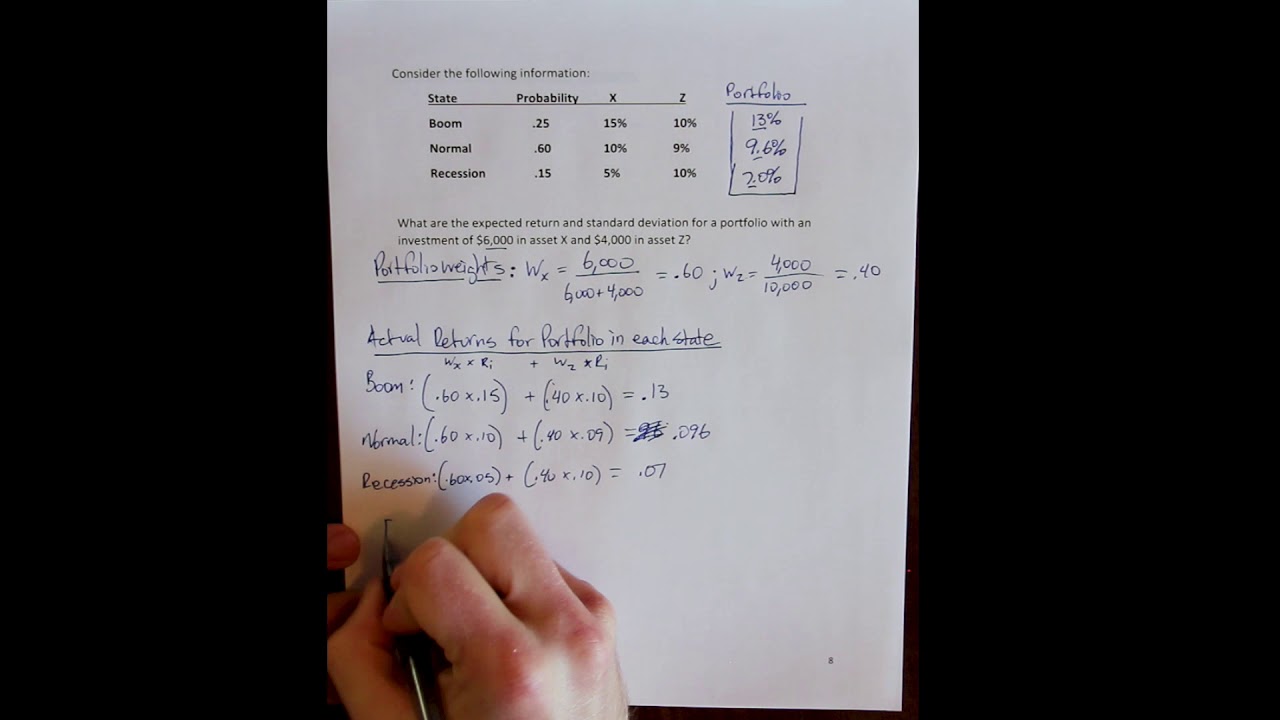 Consider the following information:
State Probability X Z Portfolio
Boom .25 15% 10% 13%
Normal .60 10% 9% 9.6%
Recession .15 5% 10% 7.0%
What are the expected return and standard deviation for a portfolio with an
investment of $6,000 in asset X and $4,000 in asset Z?
Portfolio weights: Wx = 6,000 / 6,000+4,000 = .60 ; Wz = 4,000 / 10,000 = .40
Actual Returns for Portfolio in each state
Wx × Ri + Wz × Ri
Boom: (.60 × .15) + (.40 × .10) = .13
Normal: (.60 × .10) + (.40 × .09) = .096
Recession: (.60 × .05) + (.40 × .10) = .07
8